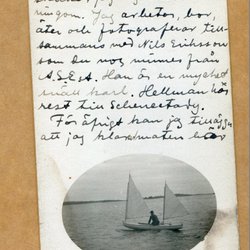 ningom. Jag arbetar, bor,
äter och fotograferar till-
sammans med Nils Eriksson
som du nog minnes från
A.S.E.A. Han är en mycket
snäll karl. Hellman har
rest till Schenectady.
För öfrigt kan jag tillägga
att jag klarmaten